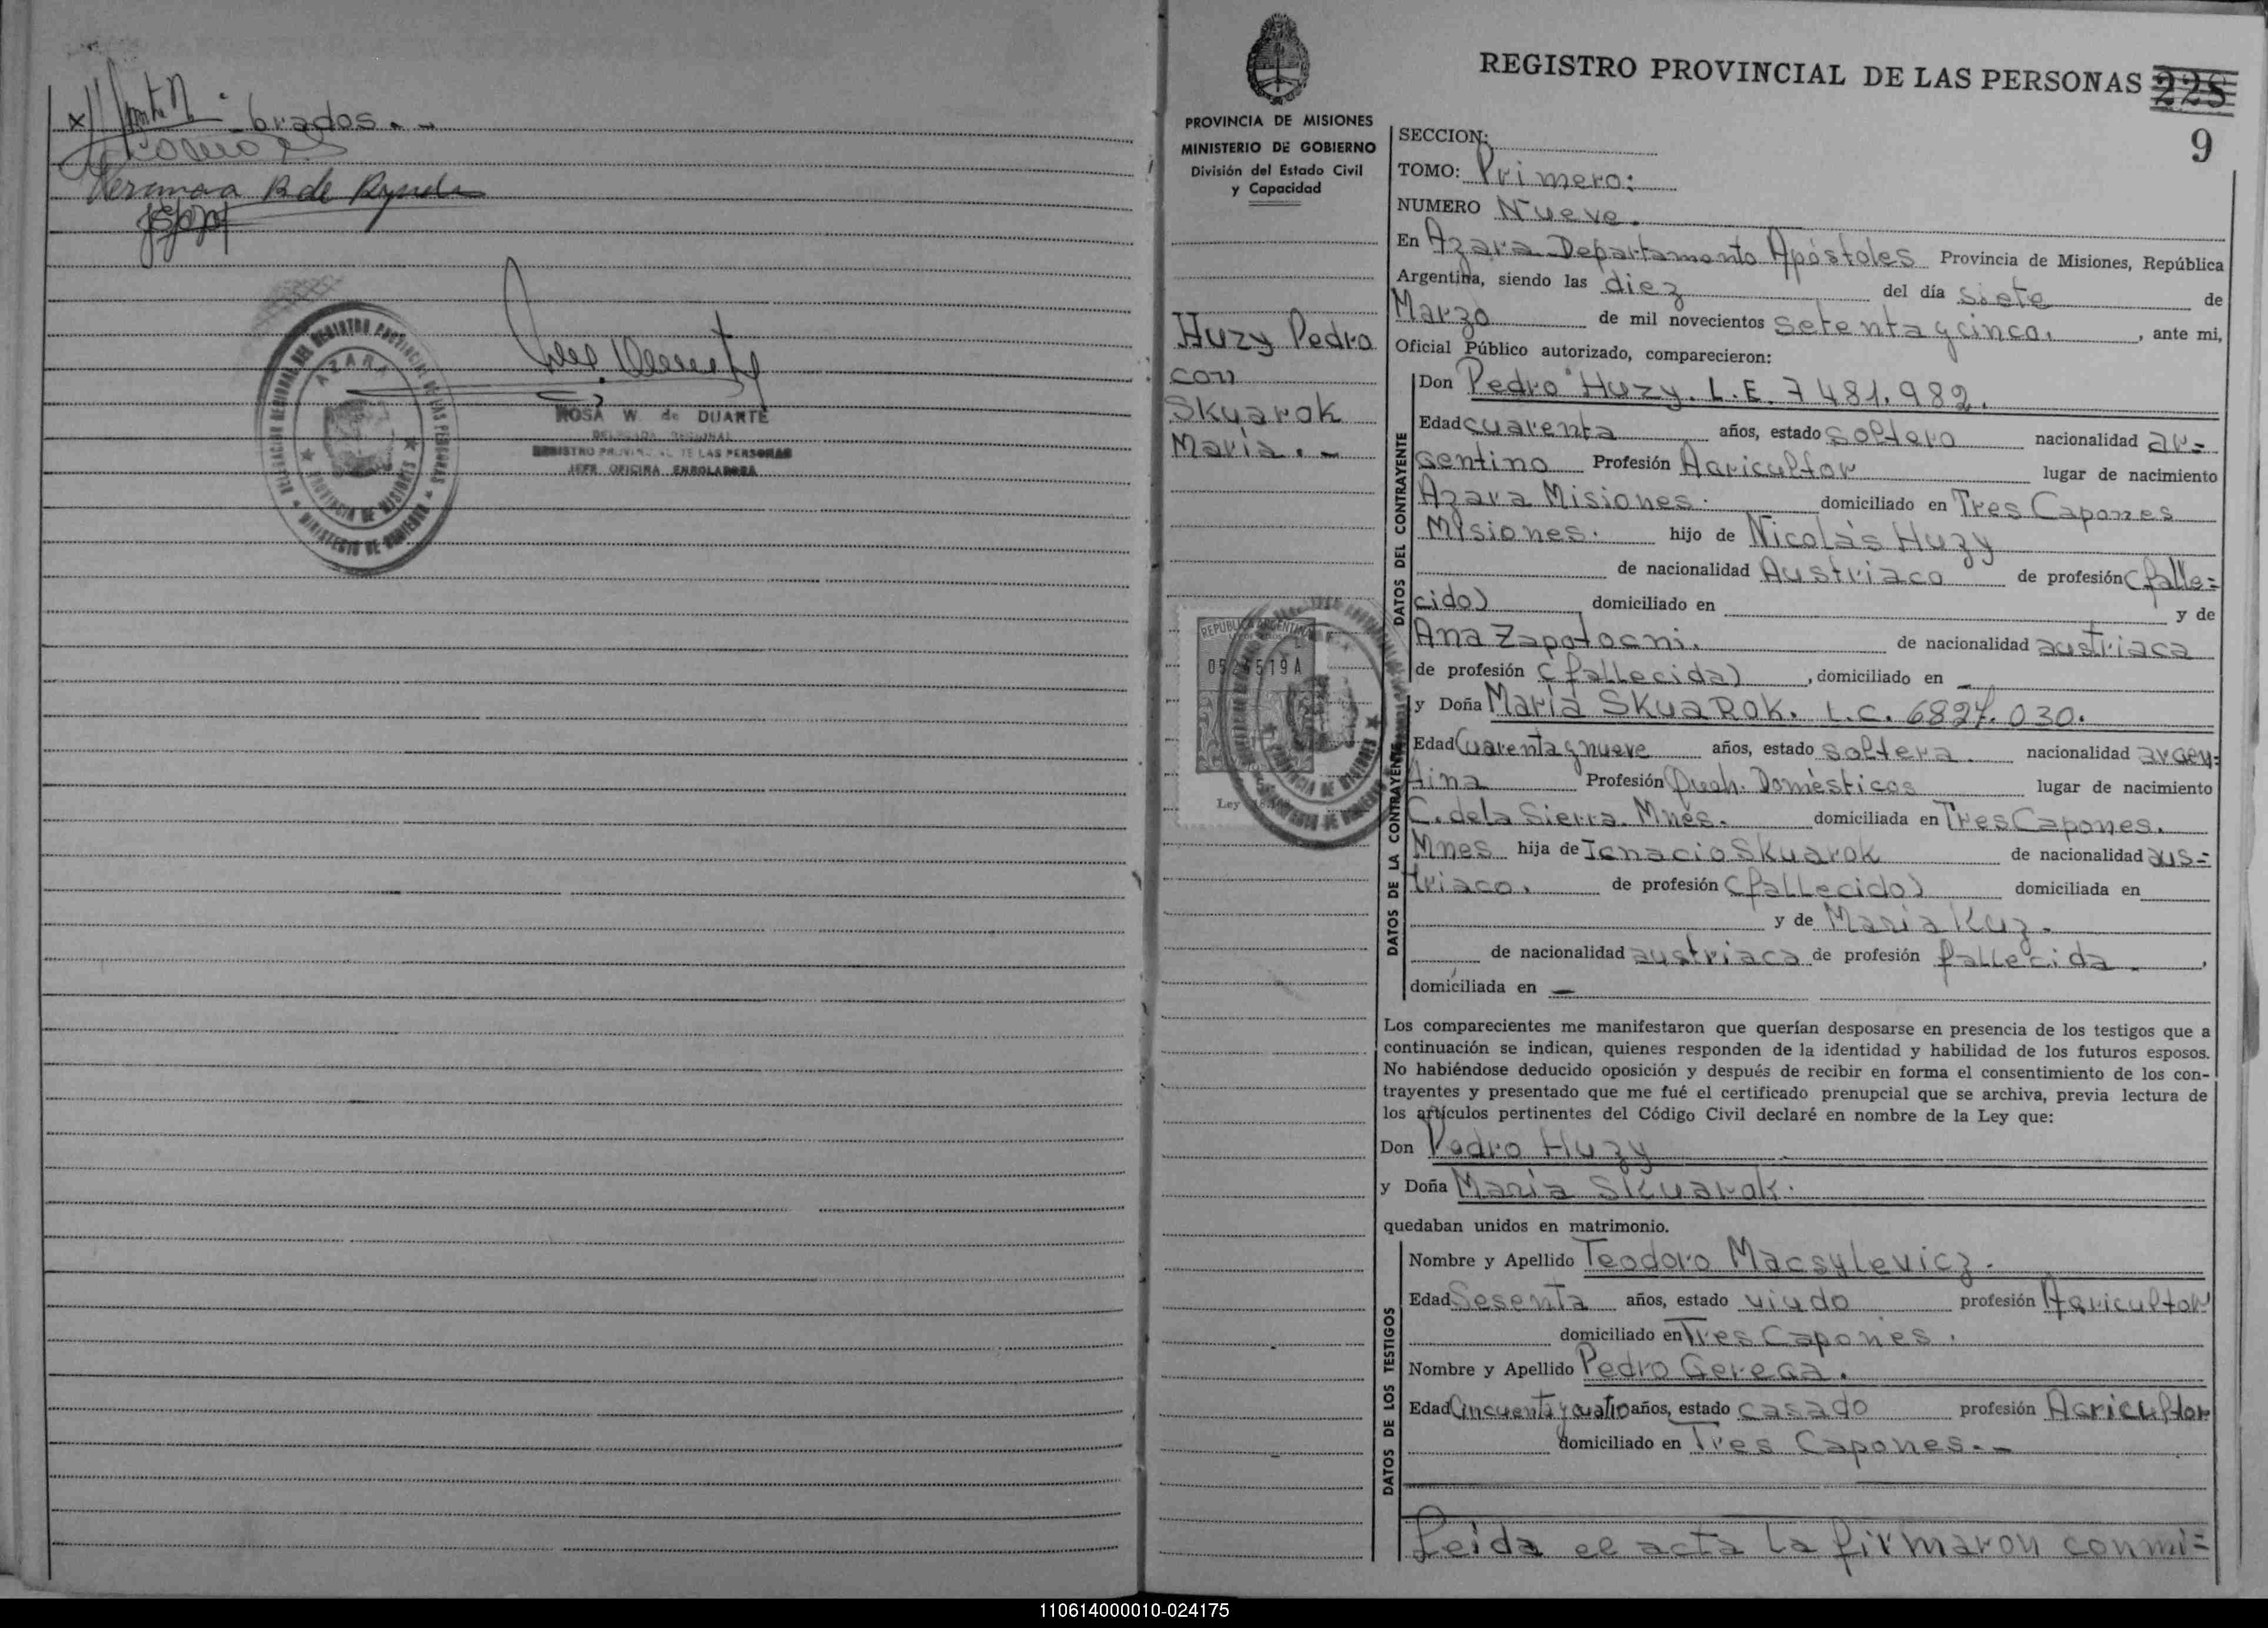 -brados. -
Veronica R de Rynda
DELEGACION REGIONAL DEL REGISTRO PROVINCIAL DE LAS PERSONAS
AZARA
PROVINCIA DE MISIONES
MINISTERIO DE GOBIERNO
ROSA W. de DUARTE
DELEGADA REGIONAL
REGISTRO PROVINCIAL DE LAS PERSONAS
JEFE OFICINA ENROLADORA
PROVINCIA DE MISIONES
MINISTERIO DE GOBIERNO
División del Estado Civil
y Capacidad
Huzy Pedro
con
Skuarok
María. -
REPUBLICA ARGENTINA
Ley
REGISTRO PROVINCIAL DE LAS PERSONAS 228
9
SECCION:
TOMO: Primero:
NUMERO Nueve.
En Azara Departamento Apóstoles Provincia de Misiones, República
Argentina, siendo las diez del día siete de
Marzo de mil novecientos setenta y cinco. , ante mi,
Oficial Público autorizado, comparecieron:
DATOS DEL CONTRAYENTE
Don Pedro Huzy. L.E. 7481.982.
Edad cuarenta años, estado soltero nacionalidad ar=
gentino Profesión Agricultor lugar de nacimiento
Azara Misiones. domiciliado en Tres Capones
Misiones. hijo de Nicolás Huzy
de nacionalidad Austriaco de profesión (falle=
cido) domiciliado en y de
Ana Zapotocni. de nacionalidad austriaca
de profesión (fallecida) , domiciliado en -
DATOS DE LA CONTRAYENTE
y Doña María Skuarok. L.C. 6827.030.
Edad Cuarenta y nueve años, estado soltera. nacionalidad argen=
tina Profesión Queh. Domésticos lugar de nacimiento
C. de la Sierra. Mnes. domiciliada en Tres Capones.
Mnes hija de Ignacio Skuarok de nacionalidad aus=
triaco. de profesión (fallecido) domiciliada en
y de María Kuz.
de nacionalidad austriaca de profesión fallecida. ,
domiciliada en -
Los comparecientes me manifestaron que querían desposarse en presencia de los testigos que a
continuación se indican, quienes responden de la identidad y habilidad de los futuros esposos.
No habiéndose deducido oposición y después de recibir en forma el consentimiento de los con-
trayentes y presentado que me fué el certificado prenupcial que se archiva, previa lectura de
los artículos pertinentes del Código Civil declaré en nombre de la Ley que:
Don Pedro Huzy
y Doña María Skuarok.
quedaban unidos en matrimonio.
DATOS DE LOS TESTIGOS
Nombre y Apellido Teodoro Macsylevicz.
Edad Sesenta años, estado viudo profesión Agricultor
domiciliado en Tres Capones.
Nombre y Apellido Pedro Gerega.
Edad Cincuenta y cuatro años, estado casado profesión Agricultor
domiciliado en Tres Capones. -
Leida el acta la firmaron conmi=
110614000010-024175